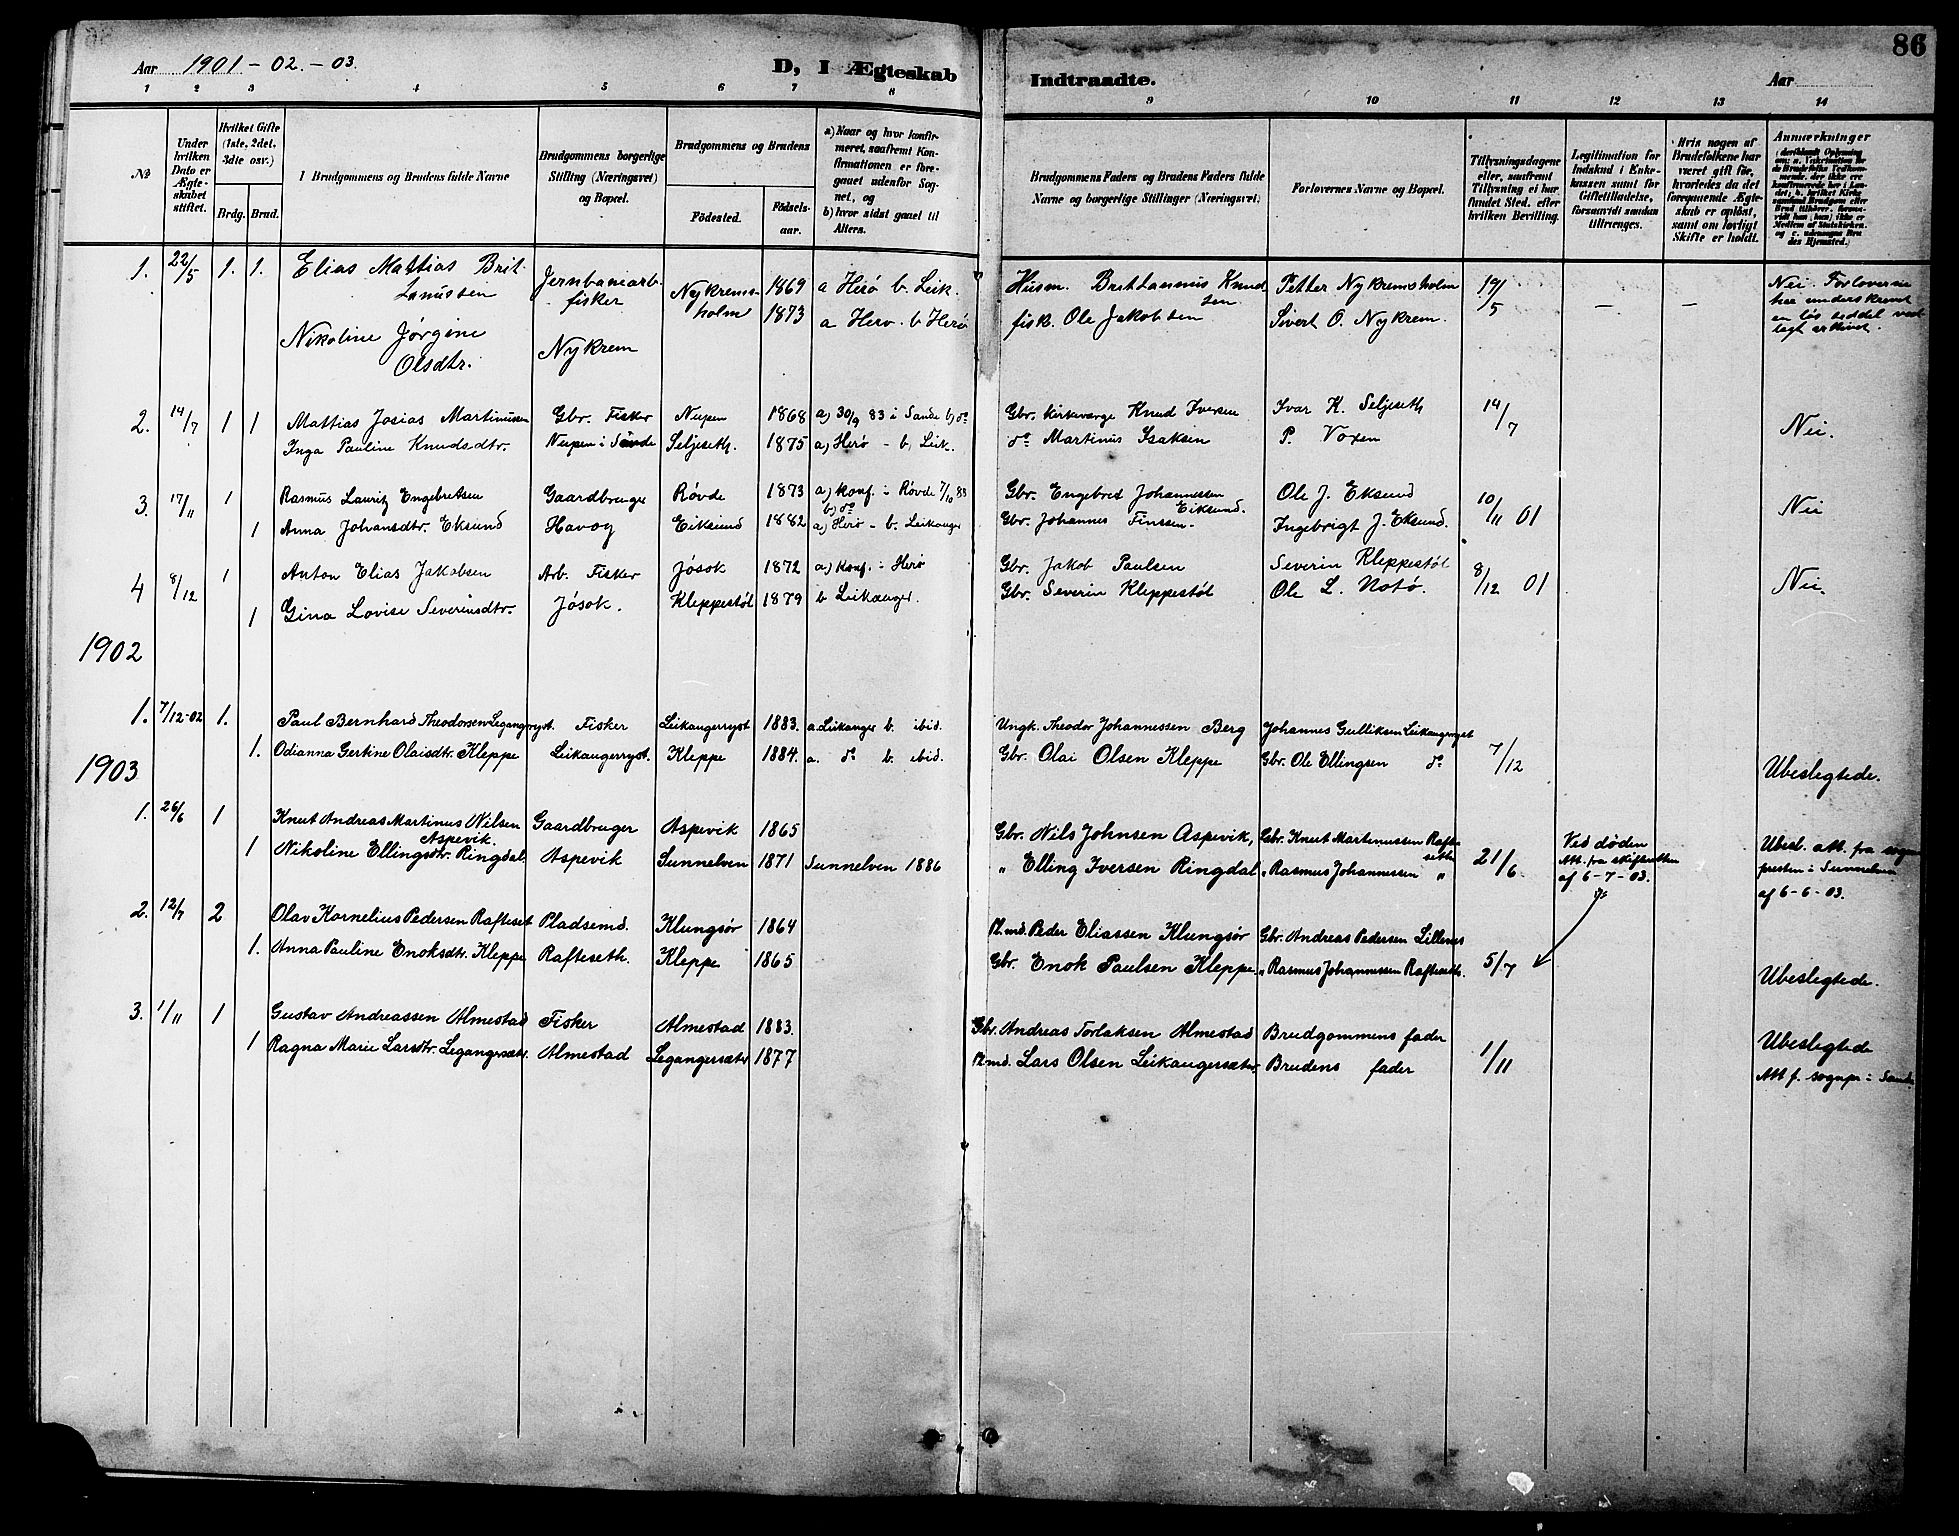 Aar 1901-02.-03. D, I Ægteskab Indtraadte. Aar 86
1 2 3 4 5 6 7 8 9 10 11 12 13 14
No
Under hvilken Dato er Ægteskabet stiftet.
Hvilket Gifte (1ste, 2det, 3die osv.)
Brdg. Brud.
Brudgommens og Brudens fulde Navne
Brudgommens borgerlige Stilling (Næringsvei) og Bopæl.
Brudgommens og Brudens
Födested. Födselsaar.
a) Naar og hvor konfirmeret, saafremt Konfirmationen er foregaaet udenfor Sognet, og
b) hvor sidst gaaet til Alters.
Brudgommens Faders og Brudens Faders fulde Navne og borgerlige Stillinger (Næringsvei)
Forlovernes Navne og Bopæl.
Tillysningsdagene eller, saafremt Tillysning ei har fundet Sted, efter hvilken Bevilling.
Legitimation for Indskud i Enkekassen samt for Giftetilladelse, forsaavidt saadan tiltrænges.
Hvis nogen af Brudefolkene har været gift för, hvorledes da det foregaaende Ægteskab er oplöst, samt om lovligt Skifte er holdt.
Anmærkninger
1. 22/5 1. 1. Elias Mattias Brit- Jernbaniarb. 1869 a Herø b. Leik. Husm. Knud- Petter Nykremsholm 19/5 – – Nei. Forloverne
fisker Nykremsholm sen har underskrevet
Nikoline Jørgine Nykrem 1873 a Herø - b Herø fisk. Ole Jakobsen Sivert O. Nykrem. en løs seddel ved-
Olsdtr. lagt arkivet.
2. 14/7 1 1 Mattias Josias Martinussen Gbr. Fisker Nupen 1868 a) 30/9 83 i Sande b) do Gbr. Kirkværge Knud Iversen Ivar K. Seljeseth 14/7 Nei.
Inga Pauline Knudsdtr. Nupen i Sande Seljeseth. 1875 a) Herø - b. Leik. do Martinus Isaksen P. Voxen
3. 17/11 1 Rasmus Lauritz Engebretsen Gaardbruger Røvde 1873 a) Konf. i Røvde 7/10 83 b) do Gbr. Engebret Johannessen Ole J. Eksund 10/11 01 Nei
1 Anna Johansdtr. Eksund Havøy Eiksund 1882 a) Herø - b. Leikanger Gbr. Johannes Finssen Eiksund. Ingebrigt J. Eksund.
4 8/12 1 Anton Elias Jakobsen Arb. Fisker Jøsok 1872 a) konf. i Herø Gbr. Jakob Paulsen Severin Kleppestøl 8/12 01 Nei.
1 Gina Lovise Severinsdtr. Jøsok. Kleppestøl 1879 b Leikanger. Gbr. Severin Kleppestøl Ole L. Notø.
1902
1. 7/12-02 1. Paul Bernhard Theodorsen Legangryst. Fisker Leikangerryst 1883. a. Leikanger b. ibid. Ungk. Theodor Johannessen Berg Johannes Gulliksen Leikangryst 7/12
1. Odianna Gertine Olaisdtr. Kleppe Leikangerryst. Kleppe 1884. a. do b. ibid. Gbr. Olai Olsen Kleppe Gbr. Ole Ellingsen do Ubeslegtede.
1903
1. 26/6 1 Knut Andreas Martinus Nilsen Aspevik. Gaardbruger Aspevik 1865 Gbr. Nils Johnsen Aspevik, Gbr. Knut Martinussen Raftesetth 21/6 Ved døden Att. fra skifteretten af 6-7-03. Ubesl. att. fra sogne-
1 Nikoline Ellingsdtr. Ringdal. Aspevik Sunnelven 1871 Sunnelven 1886 " Elling Iversen Ringdal " Rasmus Johannessen " presten i Sunnelven
af 6-6-03.
2. 12/7 2 Olav Kornelius Pedersen Rafteset Pladsemd. Klungsør 1864 Pl.md. Peder Eliassen Klungsør Gbr. Andreas Pedersen Lillenes 5/7
1. Anna Pauline Enoksdtr. Kleppe Rafteseth. Kleppe 1865 Gbr. Enok Paulsen Kleppe. " Rasmus Johannessen Rafteseth. Ubeslegtede.
3. 1/11 1 Gustav Andreassen Almestad Fisker Almestad 1883. Gbr. Andreas Torlaksen Almestad Brudgommens fader 1/11 Ubeslegtede
1 Ragna Marie Larsdtr. Legangersæter. Almestad Legangersæter 1877 Pl.md. Lars Olsen Leikangersæter Brudens fader Att f. sognepr. i Sande